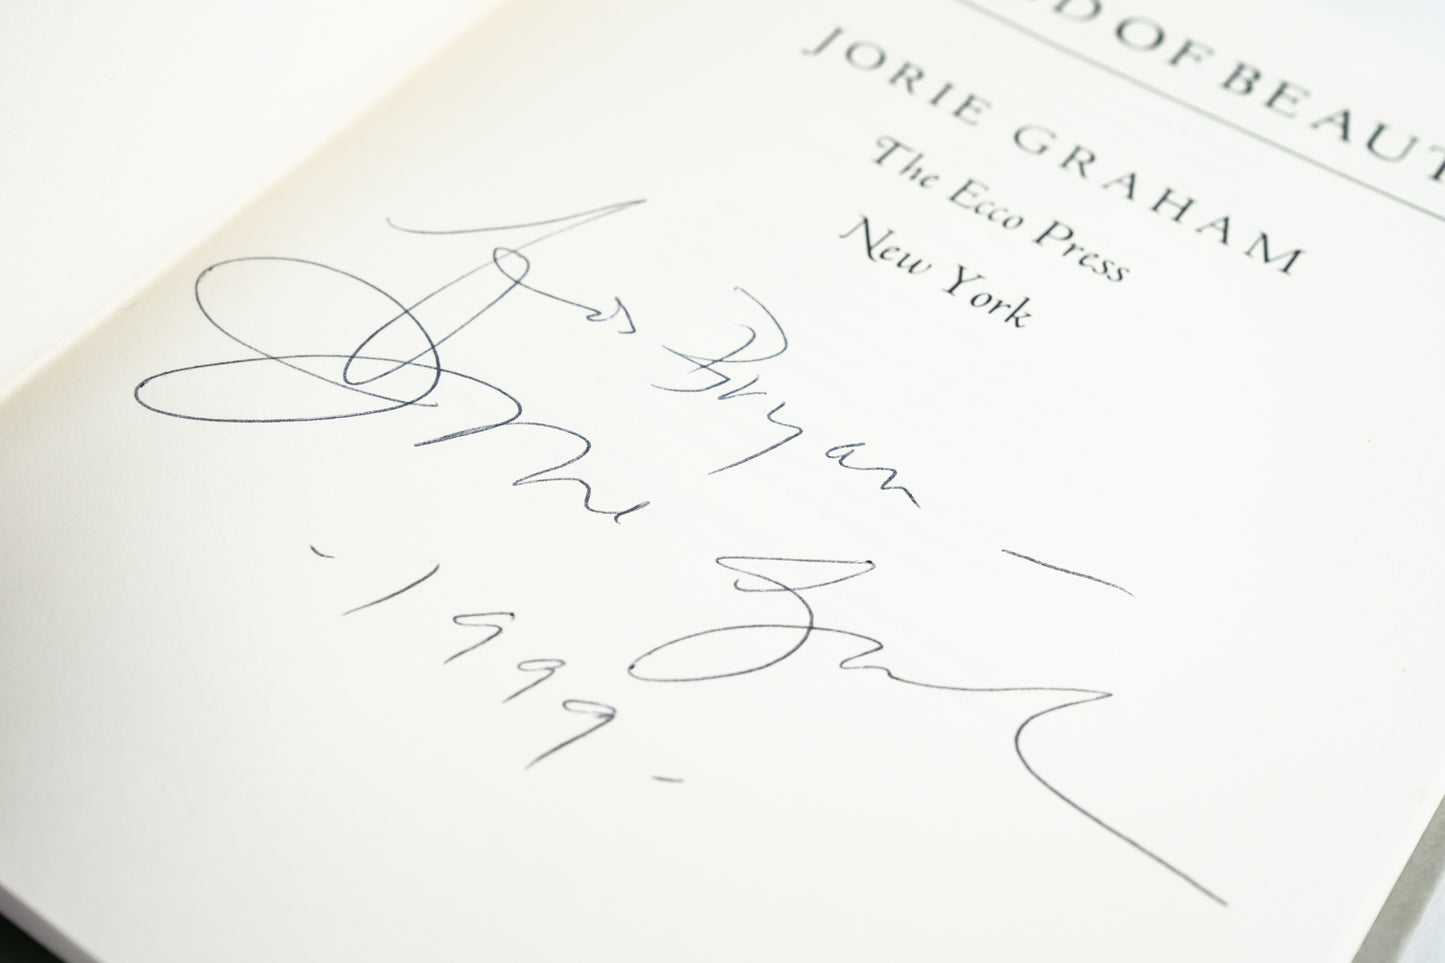 D OF BEAUT
JORIE GRAHAM
The Ecco Press
New York
For Bryan —
Jorie Graham
- 1999 -